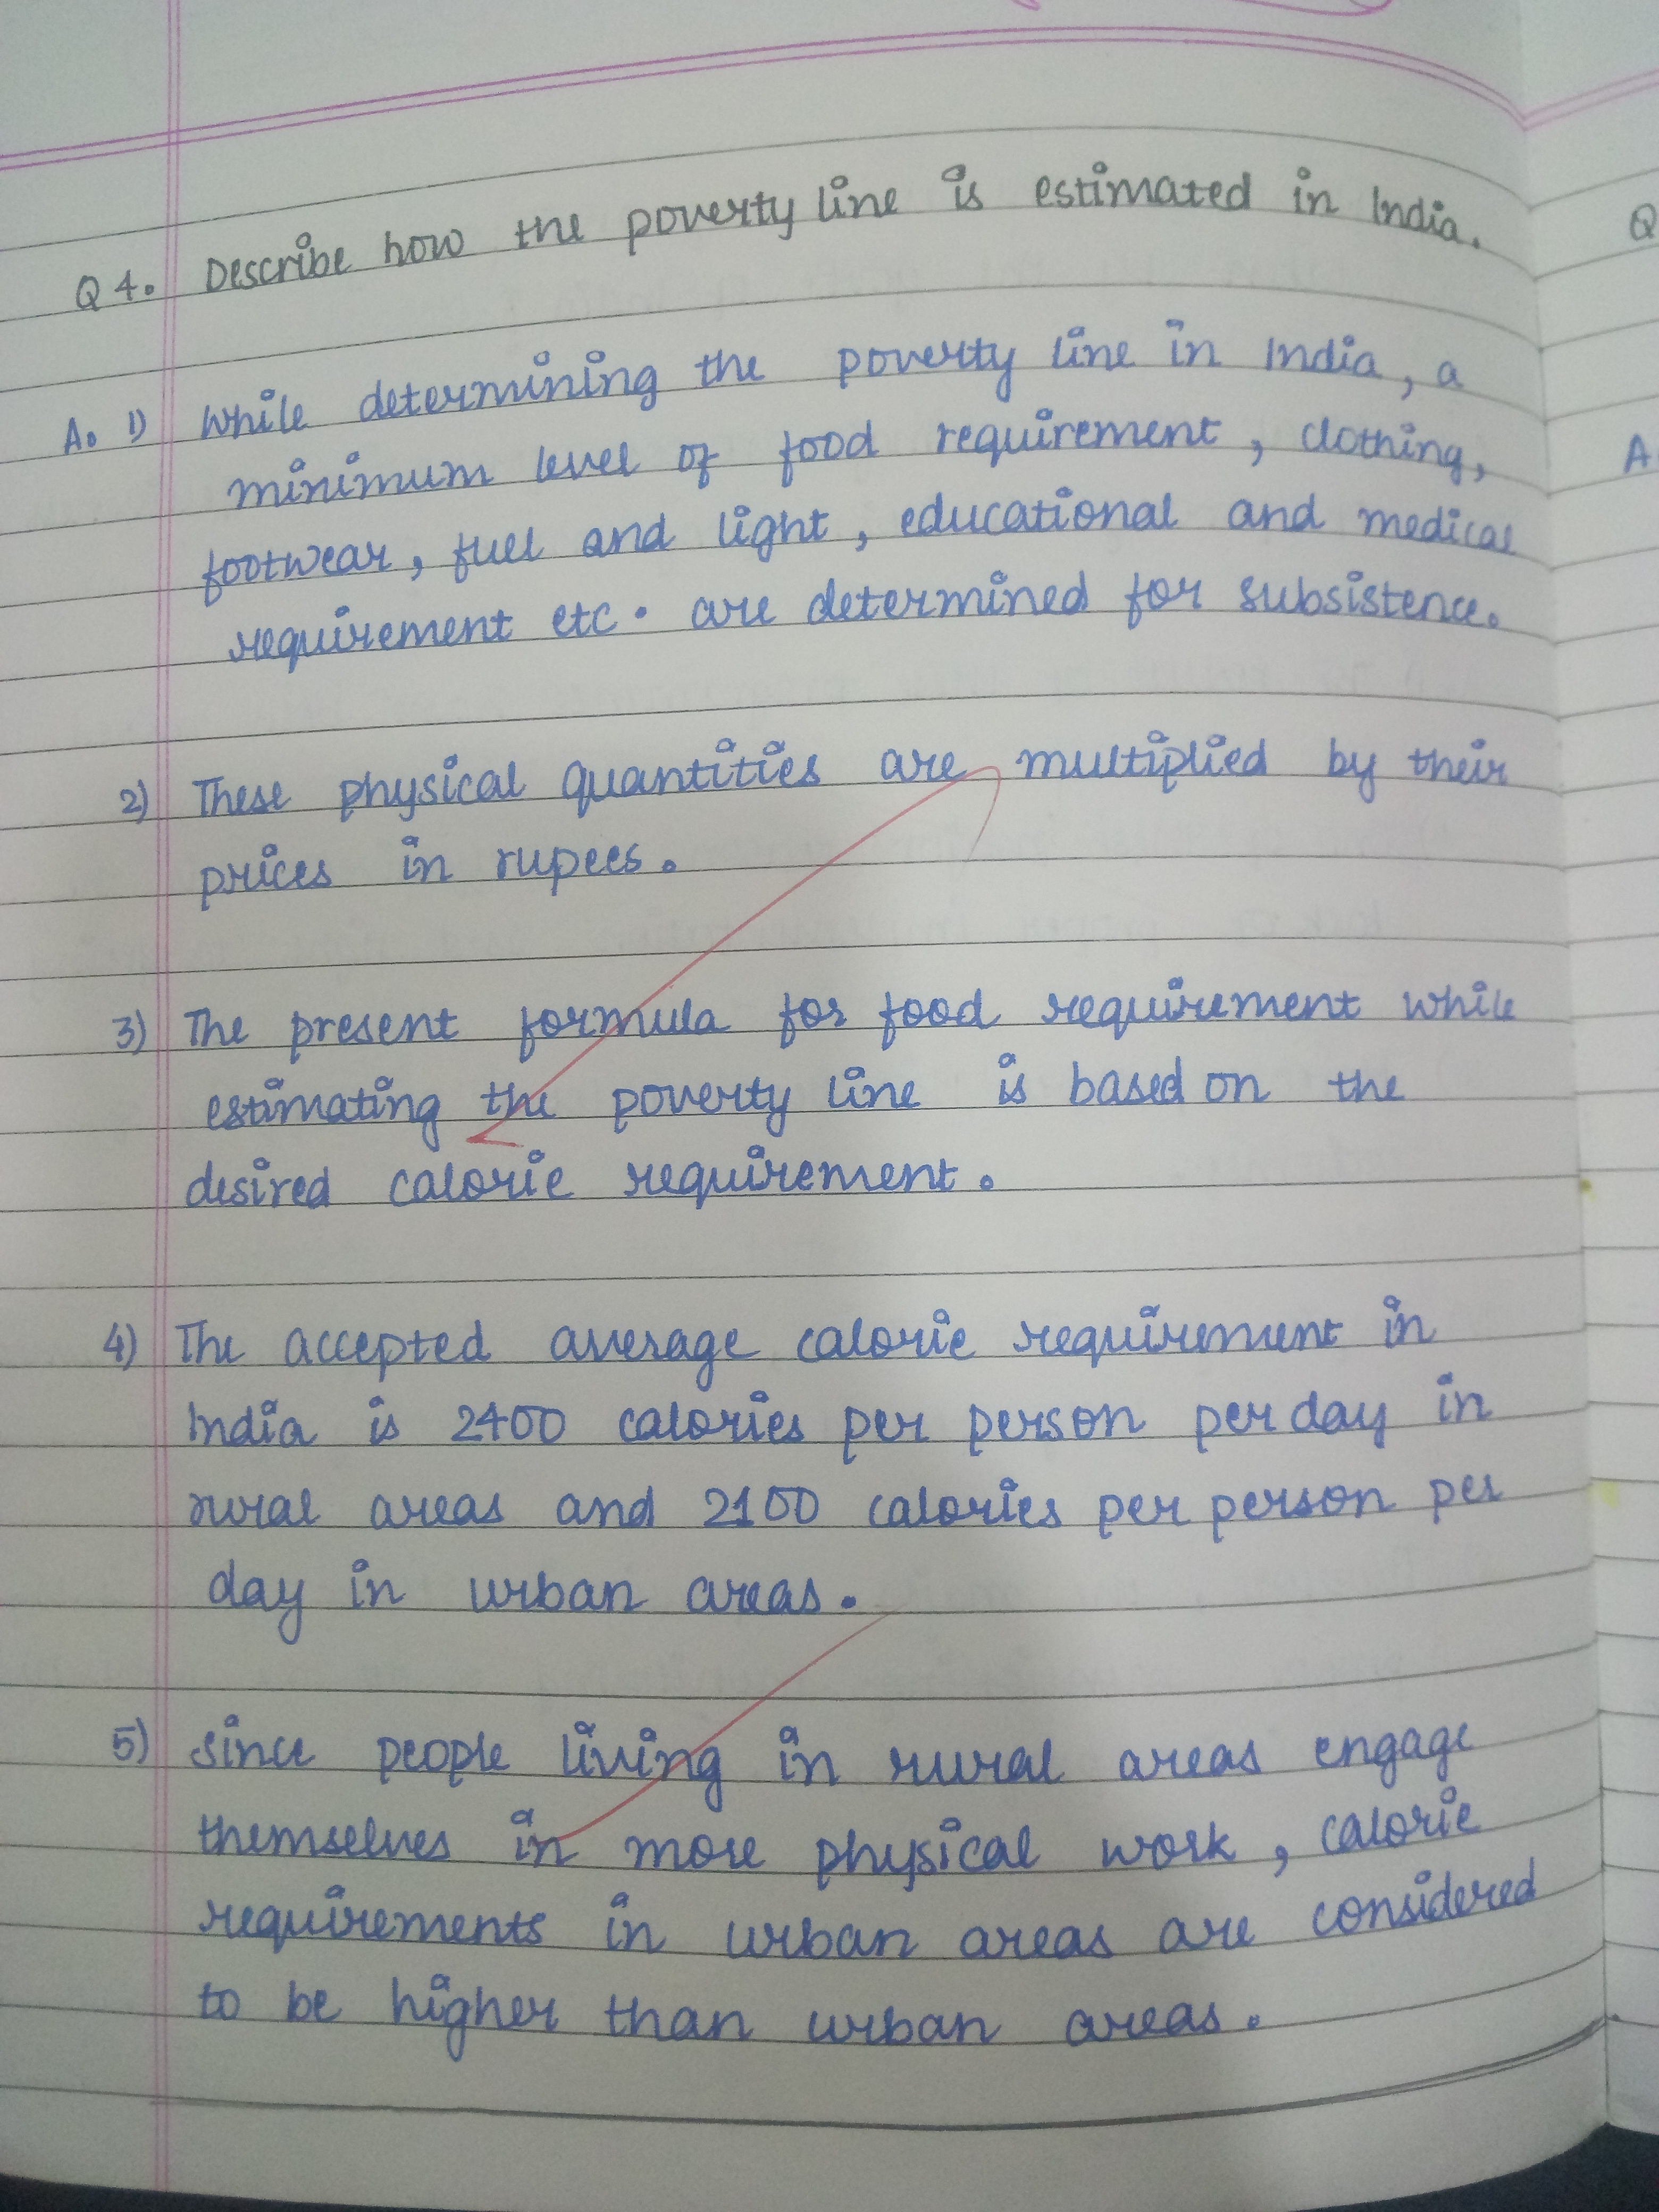 Q4. Describe how the poverty line is estimated in India.
A. 1) While determining the poverty line in India, a
minimum level of food requirement, clothing,
footwear, fuel and light, educational and medical
requirement etc. are determined for subsistence.
2) These physical quantities are multiplied by their
prices in rupees.
3) The present formula for food requirement while
estimating the poverty line is based on the
desired calorie requirement.
4) The accepted average calorie requirement in
India is 2400 calories per person per day in
rural areas and 2100 calories per person per
day in urban areas.
5) Since people living in rural areas engage
themselves in more physical work, calorie
requirements in urban areas are considered
to be higher than urban areas.
Q
A